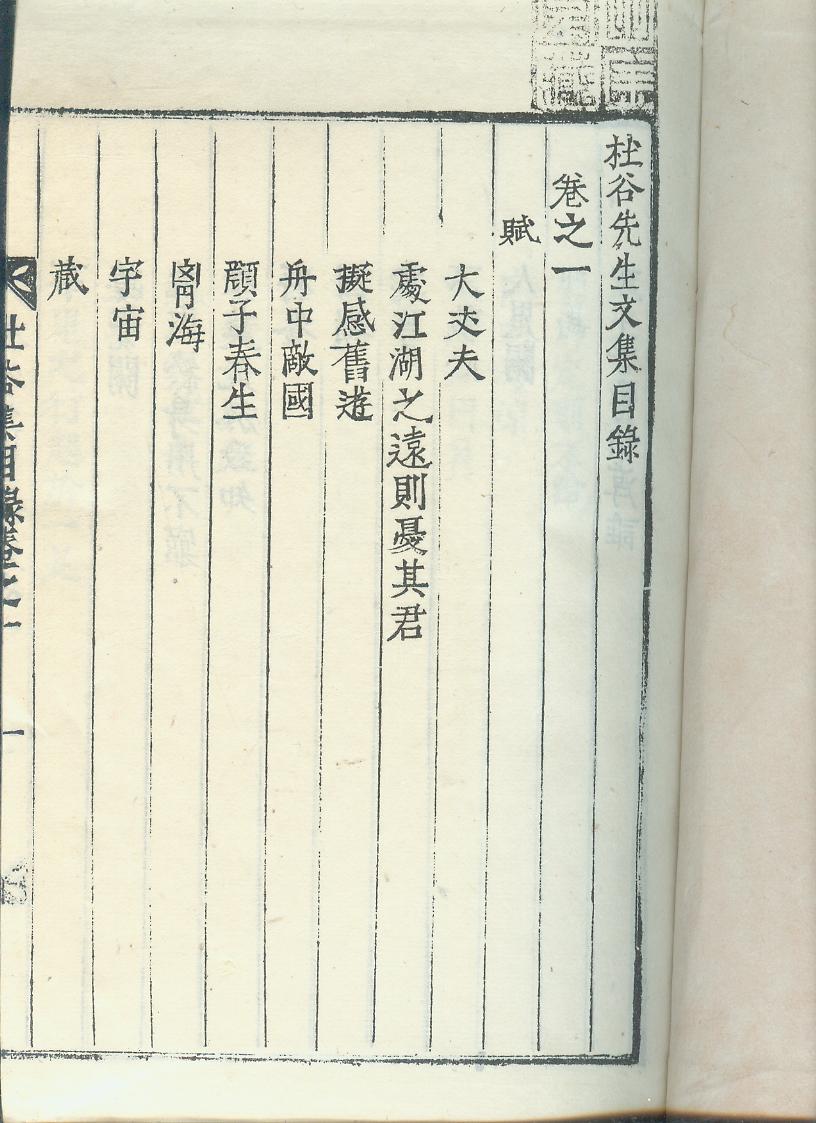 杜谷先生文集目錄
卷之一
賦
大丈夫
處江湖之遠則憂其君
擬感舊遊
舟中敵國
顔子春生
胷海
宇宙
藏
杜谷集目錄卷之一 一